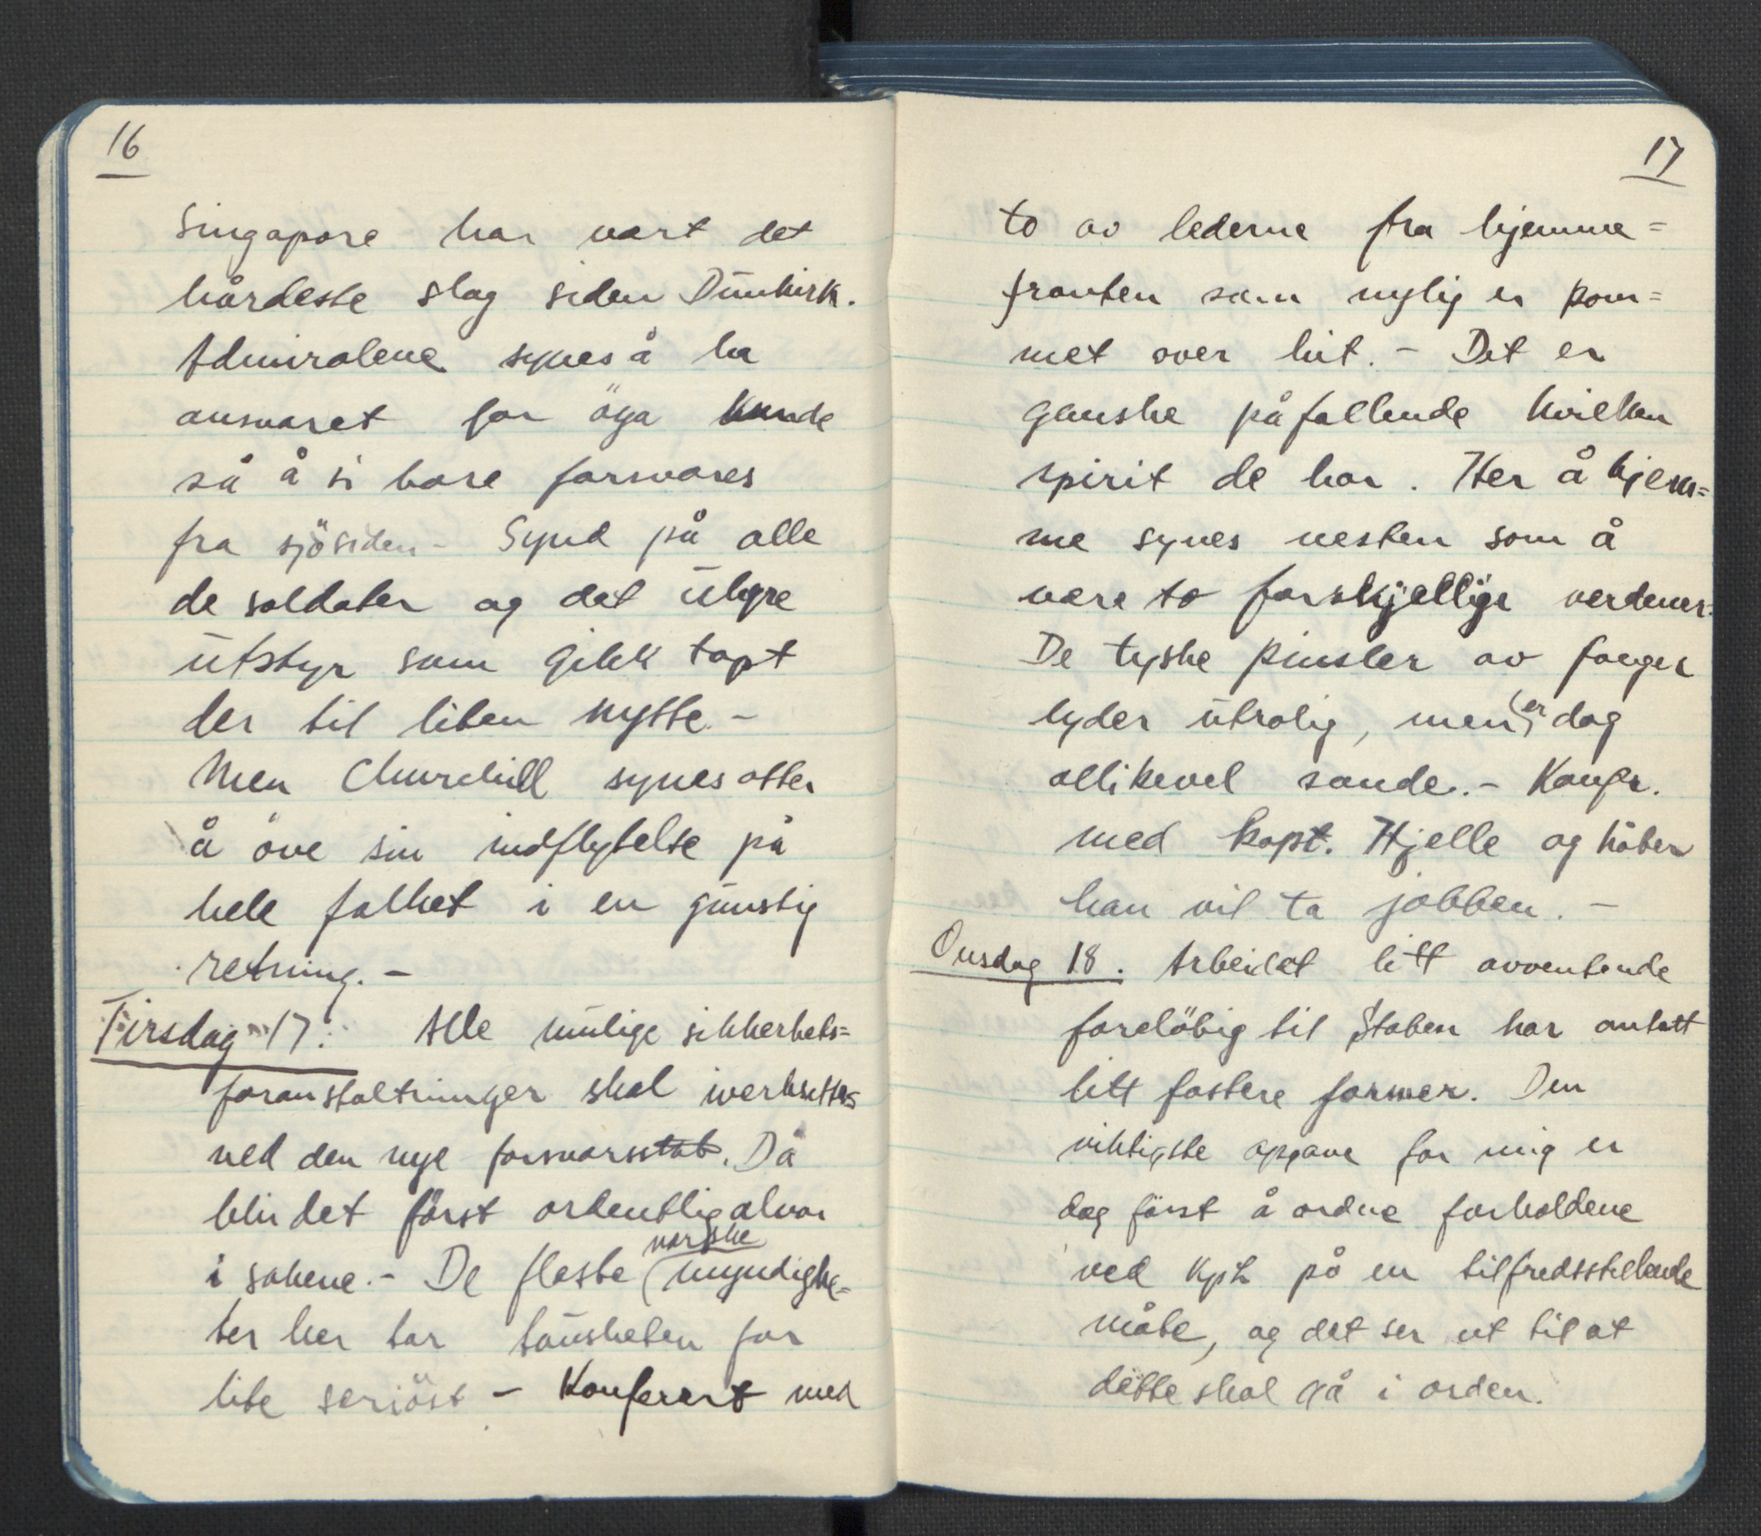 16
Singapore har vært det
hårdeste slag siden Dunkirk.
Admiralene synes å ha
ansvaret for öya kunde
så å si bare forsvares
fra sjösiden - Synd på alle
de soldater og det uhyre
utstyr som gikk tapt
der til liten nytte -
Men Churchill synes atter
å öve sin indflytelse på
hele folket i en gunstig
retning. -
Tirsdag 17. Alle mulige sikkerhets=
foranstaltninger skal iverksettes
ved den nye forsvarsstab. Då
blir det först ordentlig alvor
norske
i sakene. - De fleste (myndighe=
ter her tar tausheten for
lite seriöst - Konferert med
17
to av lederne fra hjemme=
fronten som nylig er kom=
met over hit. - Det er
ganske påfallende hvilken
spirit de har. Her å hjem=
me synes nesten som å
være to forskjellige verdener.
De tyske pinsler av fanger
lyder utrolig, men (er) dog
allikevel sande. - Konfr.
med kapt. Hjelle og håber
han vil ta jobben. -
Onsdag 18. Arbeidet litt avventende
foreløbig til Staben har antatt
litt fastere former. Den
viktigste opgave for mig er
dog först å ordne forholdene
ved Kpt. på en tilfredsstillende
måte, og det ser ut til at
dette skal gå i orden.